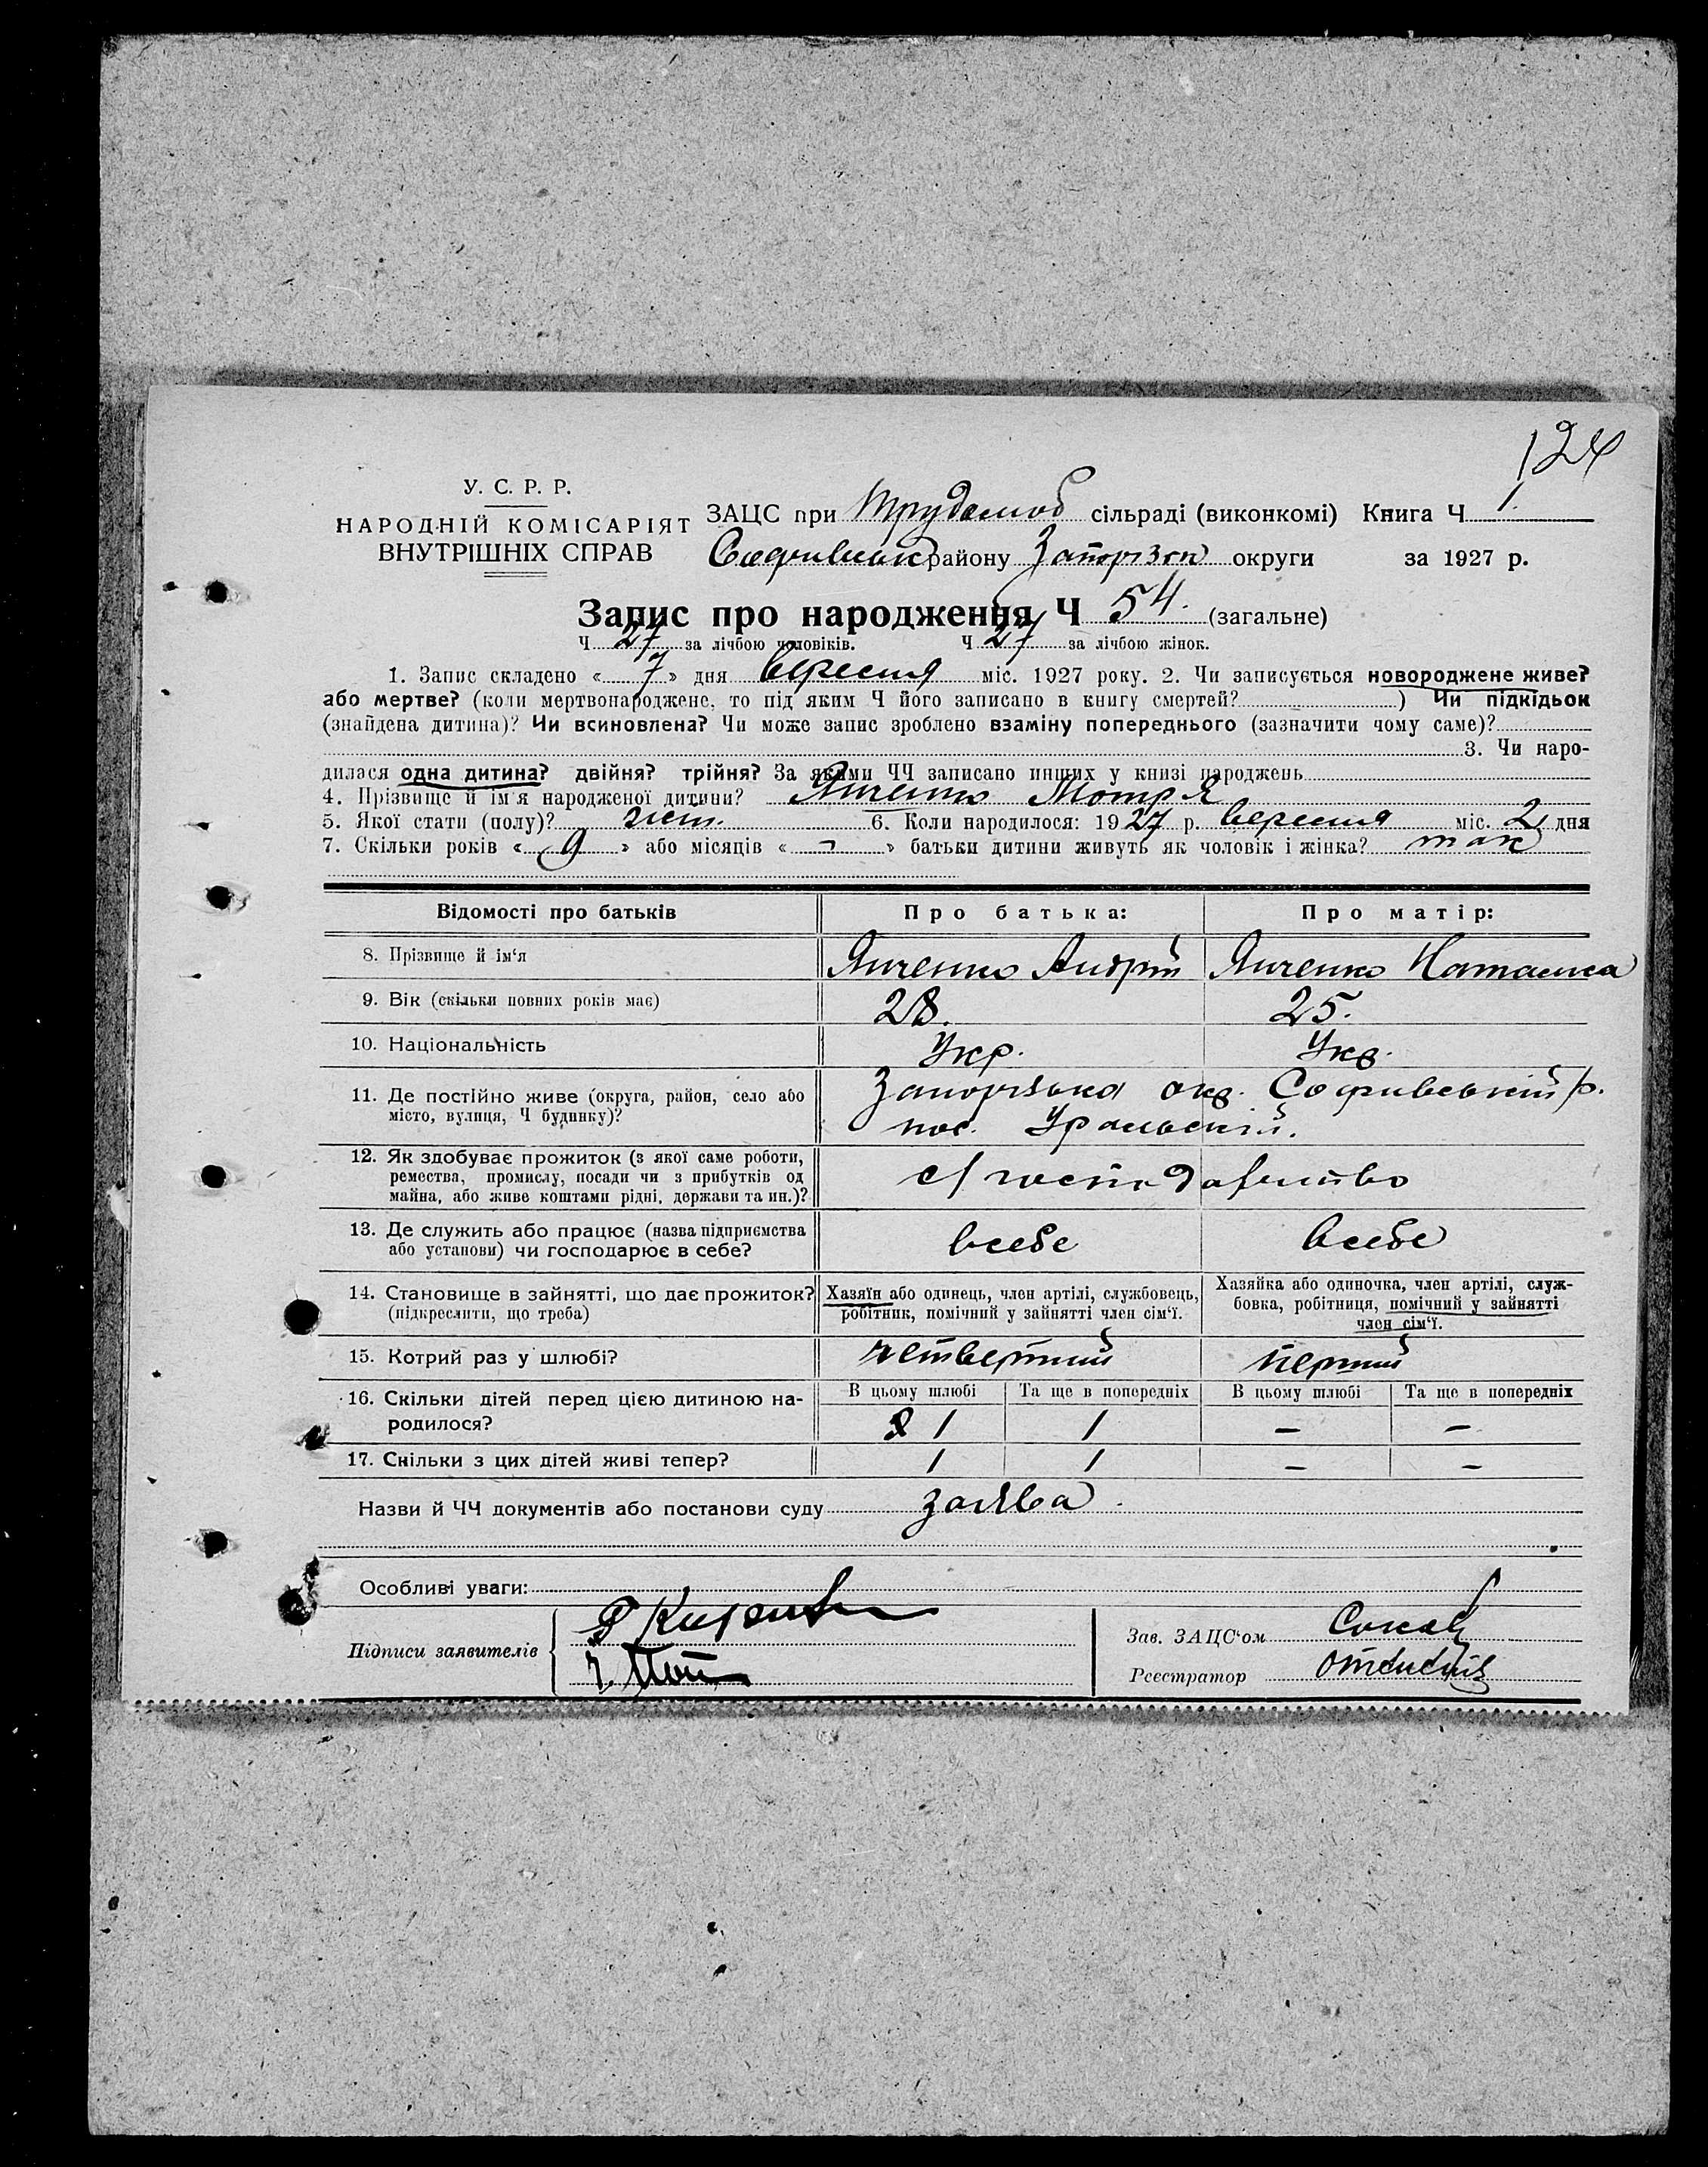 124
У. С. Р. Р.
НАРОДНІЙ КОМІСАРІЯТ
ВНУТРІШНІХ СПРАВ
ЗАЦС при сільраді (виконкомі) Книга Ч 1.
району округи за 1927 р.
Запис про народження Ч 54. (загальне)
Ч 27 за лічбою чоловіків. Ч 27 за лічбою жінок.
1. Запис складено « 7 » дня вересня міс. 1927 року. 2. Чи записується новороджене живе?
або мертве? (коли мертвонароджене, то під яким Ч його записано в книгу смертей? ) Чи підкідьок
(знайдена дитина)? Чи всиновлена? Чи може запис зроблено взаміну попереднього (зазначити чому саме)?
3. Чи наро-
дилася одна дитина? двійня? трійня? За якими ЧЧ записано инших у книзі народжень
4. Прізвище й ім'я народженої дитини? Янченко Мотря
5. Якої стати (полу)? 6. Коли народилося: 1927 р. вересня міс. 2 дня
7. Скільки років « 9 » або місяців « - » батьки дитини живуть як чоловік і жінка? так
Відомості про батьків Про батька: Про матір:
8. Прізвище й ім'я Янченко Андрій Янченко Наталка
9. Вік (скільки повних років має) 28. 25.
10. Національність Укр. Укр.
11. Де постійно живе (округа, район, село або місто, вулиця, Ч будинку)? Запорізька окр. Софиївський р.
пос. Уральский.
12. Як здобуває прожиток (з якої саме роботи,
ремества, промислу, посади чи з прибутків од
майна, або живе коштами рідні, держави та ин.)? с/господарство
13. Де служить або працює (назва підприємства
або установи) чи господарює в себе? всебе всебе
14. Становище в зайнятті, що дає прожиток? Хазяїн або одинець, член артілі, службовець, Хазяйка або одиночка, член артілі, служ-
(підкреслити, що треба) робітник, помічний у зайнятті член сім'ї. бовка, робітниця, помічний у зайнятті
член сім'ї.
15. Котрий раз у шлюбі? четвертий перший
16. Скільки дітей перед цією дитиною на- В цьому шлюбі Та ще в попередніх В цьому шлюбі Та ще в попередніх
родилося? 1 1 – –
17. Скільки з цих дітей живі тепер? 1 1 – –
Назви й ЧЧ документів або постанови суду заява
Особливі уваги:
Підписи заявителів
Зав. ЗАЦС'ом
Реєстратор